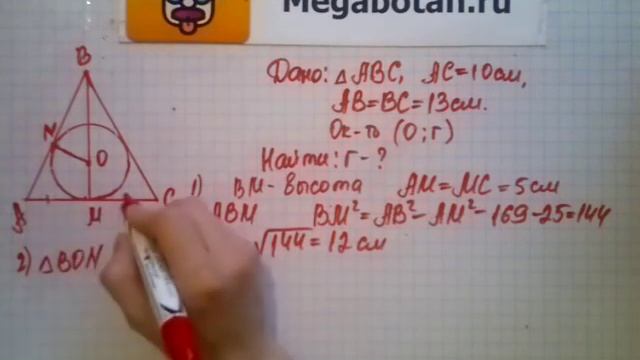 Megabotan.ru
Дано: △ABC, AC=10см,
AB=BC=13см.
Ок-ть (O; г)
Найти: г-?
B
N
O
A
M
C
1) BM-высота AM=MC=5см
ABM BM²=AB²-AM²-169-25=144
√144=12см
2) △BON